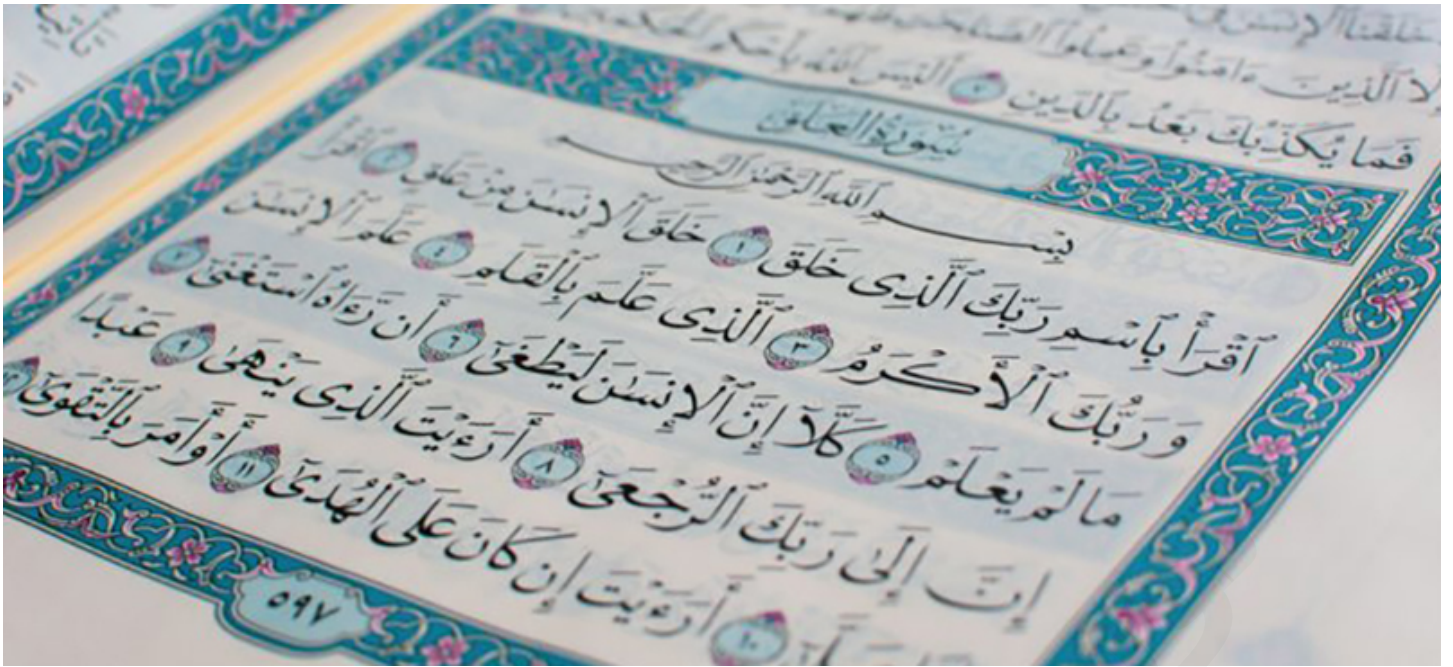 خَلَقْنَا ٱلْإِنسَٰنَ فِىٓ
إِلَّا ٱلَّذِينَ ءَامَنُوا۟ وَعَمِلُوا۟ ٱلصَّٰلِحَٰتِ
فَمَا يُكَذِّبُكَ بَعْدُ بِٱلدِّينِ ٧ أَلَيْسَ ٱللَّهُ بِأَحْكَمِ ٱلْحَٰكِمِينَ
سُورَةُ العَلَقِ
بِسْمِ ٱللَّهِ ٱلرَّحْمَٰنِ ٱلرَّحِيمِ
ٱقْرَأْ بِٱسْمِ رَبِّكَ ٱلَّذِى خَلَقَ ١ خَلَقَ ٱلْإِنسَٰنَ مِنْ عَلَقٍ ٢ ٱقْرَأْ
وَرَبُّكَ ٱلْأَكْرَمُ ٣ ٱلَّذِى عَلَّمَ بِٱلْقَلَمِ ٤ عَلَّمَ ٱلْإِنسَٰنَ
مَا لَمْ يَعْلَمْ ٥ كَلَّآ إِنَّ ٱلْإِنسَٰنَ لَيَطْغَىٰٓ ٦ أَن رَّءَاهُ ٱسْتَغْنَىٰٓ ٧
إِنَّ إِلَىٰ رَبِّكَ ٱلرُّجْعَىٰٓ ٨ أَرَءَيْتَ ٱلَّذِى يَنْهَىٰ ٩ عَبْدًا
١٠ أَرَءَيْتَ إِن كَانَ عَلَى ٱلْهُدَىٰٓ ١١ أَوْ أَمَرَ بِٱلتَّقْوَىٰٓ
٥٩٧